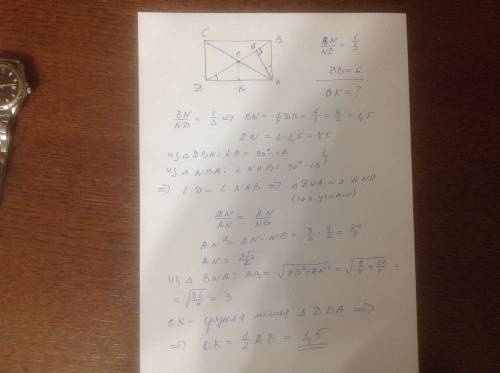 C B
N
O
D K A
BN/ND = 1/3
DB = 6
OK = ?
BN/ND = 1/3 => BN = 1/4 DB = 6/4 = 3/2 = 1,5
DN = 6-1,5 = 4,5
из △ DBA: ∠D = 90° - ∠B
из △ NBA: ∠NAB = 90° - ∠B }
=> ∠D = ∠NAB => △ DNA ~ △ ANB
(по 2 углам)
DN/AN = AN/NB
AN² = DN · NB = 3/2 · 9/2 = 27/4
AN =
из △ BNA: AB = √NB²+AN² = √9/4 + 27/4 =
= √36/4 = 3
OK - средняя линия △ DBA =>
=> OK = 1/2 AB = 1,5